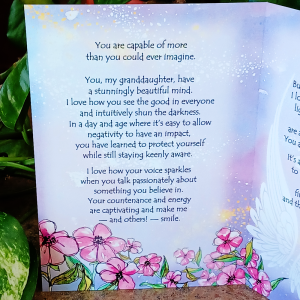 You are capable of more
than you could ever imagine.
You, my granddaughter, have
a stunningly beautiful mind.
I love how you see the good in everyone
and intuitively shun the darkness.
In a day and age where it's easy to allow
negativity to have an impact,
you have learned to protect yourself
while still staying keenly aware.
I love how your voice sparkles
when you talk passionately about
something you believe in.
Your countenance and energy
are captivating and make me
— and others! — smile.
Bu
I lo
You a
It's
and th